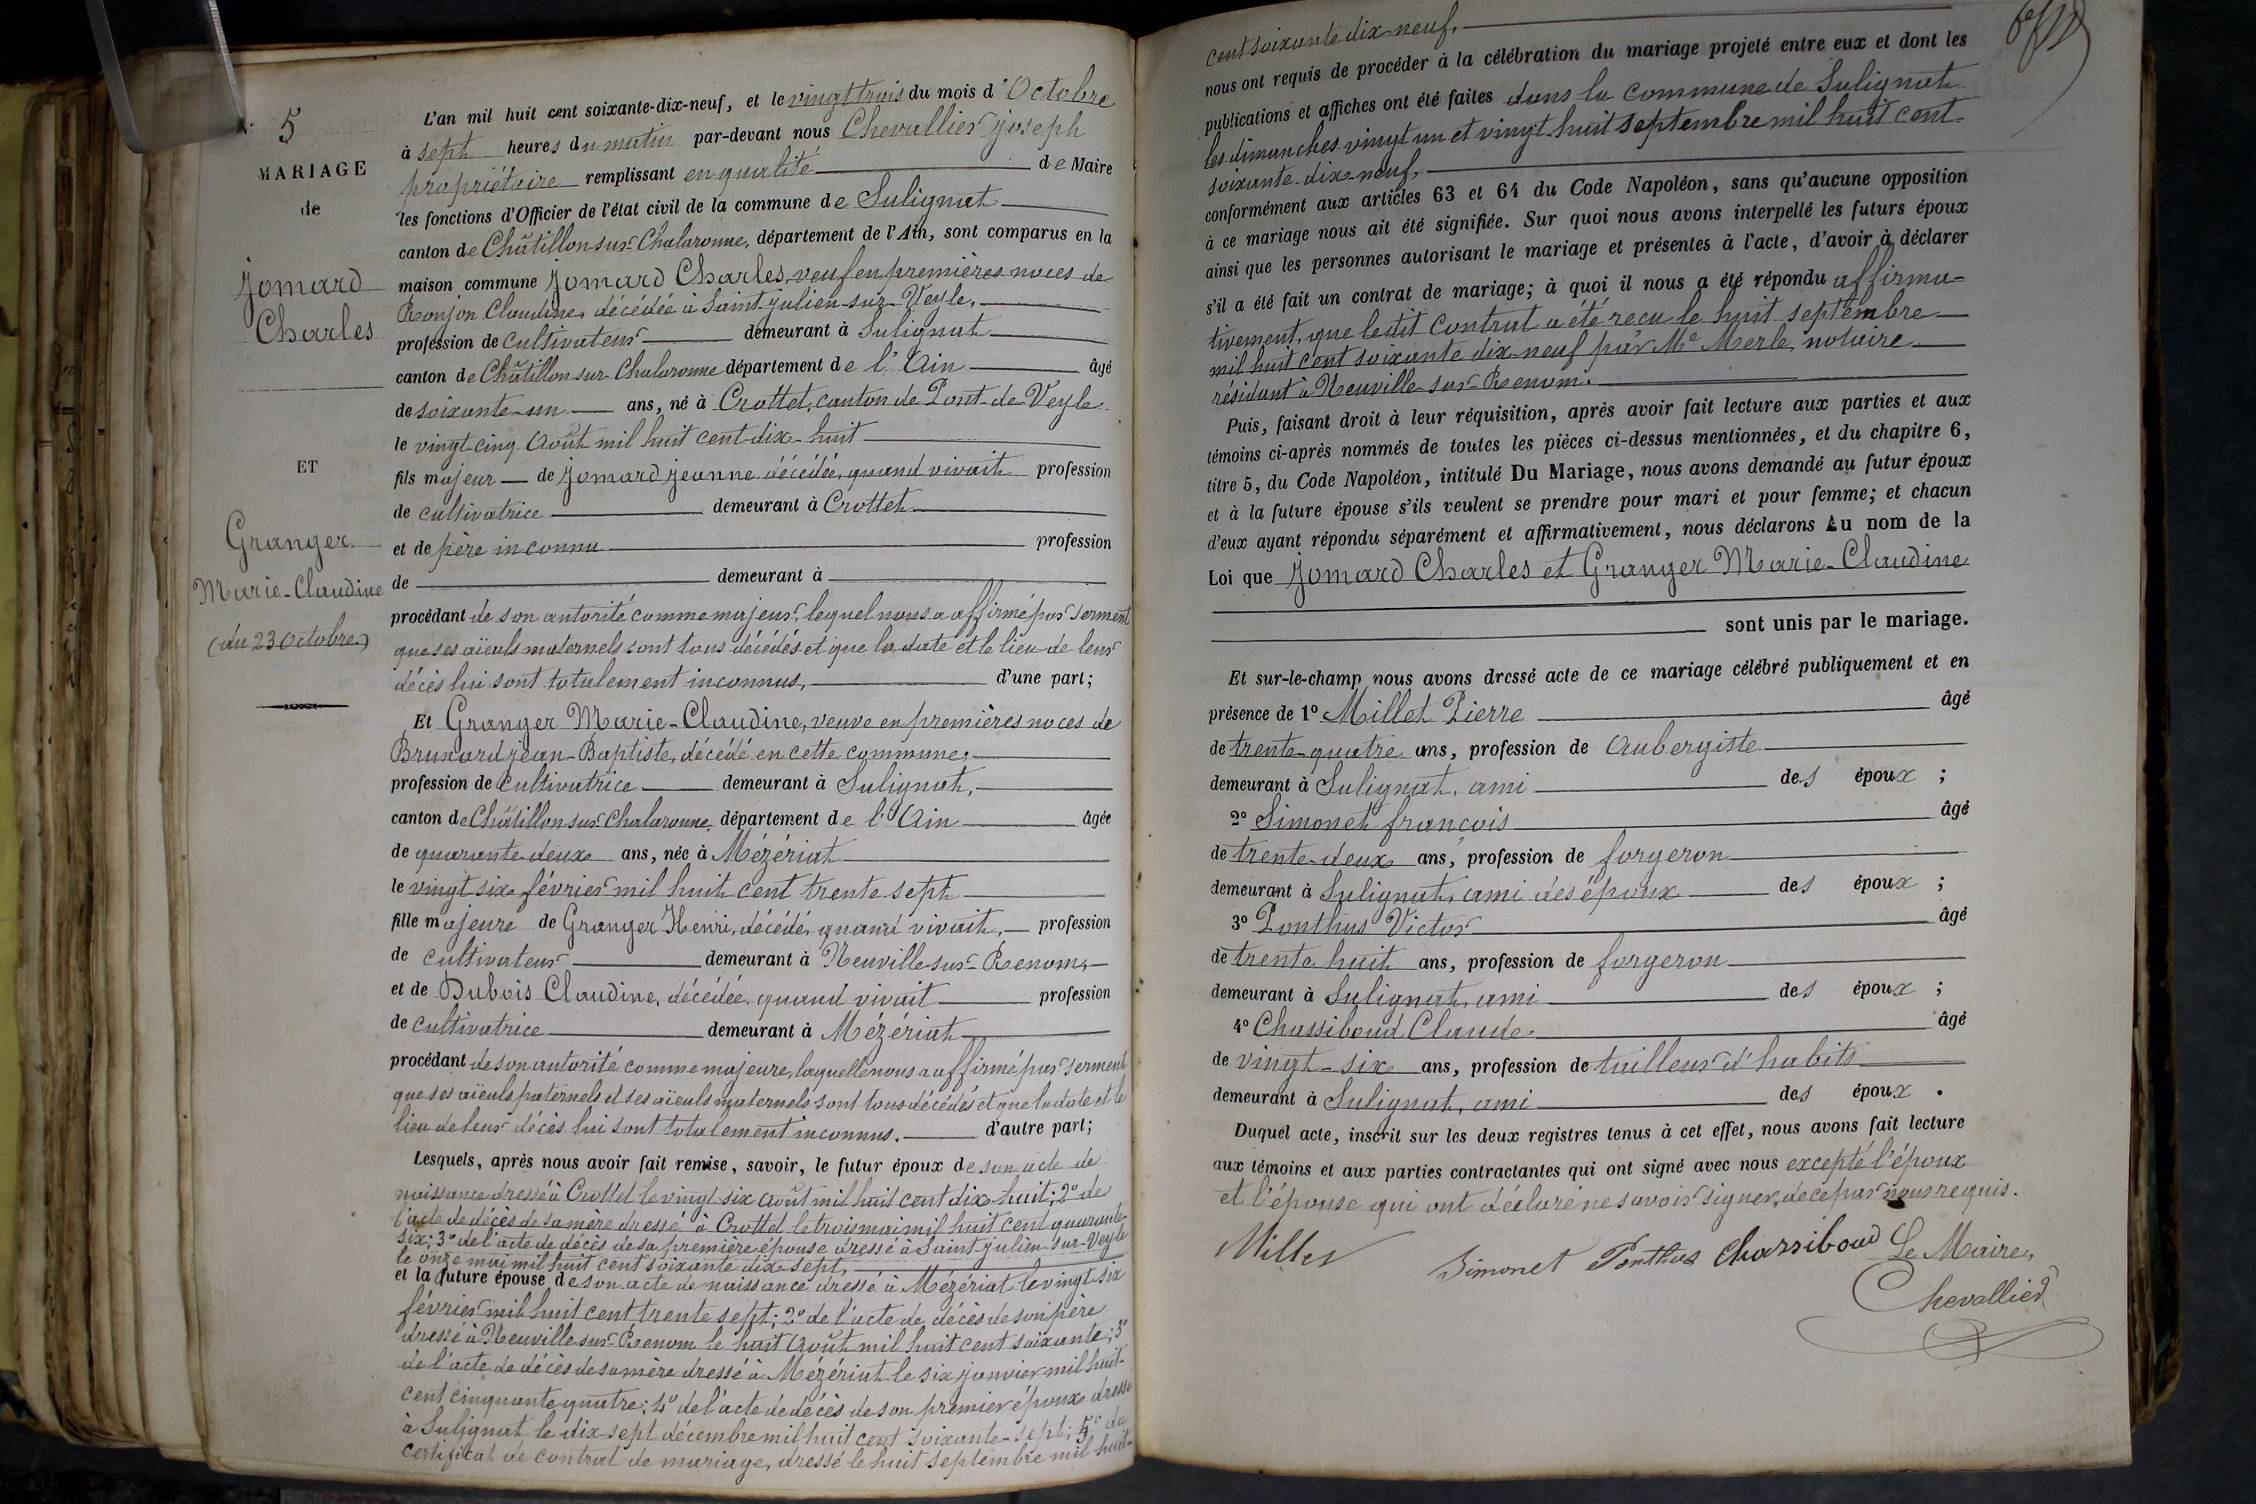 5
MARIAGE
de
Jomard
Charles
ET
Granger
Marie-Claudine
(du 23 Octobre)
L'an mil huit cent soixante-dix-neuf, et le vingt trois du mois d'Octobre
à sept heures du matin par-devant nous Chevallier Joseph
propriétaire remplissant en qualité de Maire
les fonctions d'Officier de l'état civil de la commune de Sulignat
canton de Châtillon sur Chalaronne, département de l'Ain, sont comparus en la
maison commune Jomard Charles, veuf en premières noces de
Ronjon Claudine, décédée à Saint julien-sur-Veyle,
profession de cultivateur demeurant à Sulignat
canton de Châtillon sur Chalaronne département de l'Ain âgé
de soixante-un ans, né à Crottet, canton de Pont-de-Veyle
le vingt-cinq Août mil huit cent dix-huit
fils majeur de Jomard Jeanne décédée, quand vivait profession
de cultivatrice demeurant à Crottet
et de père inconnu profession
de demeurant à
procédant de son autorité comme majeur, lequel nous a affirmé par serment
que ses aïeuls maternels sont tous décédés et que la date et le lieu de leur
décès lui sont totalement inconnus, d'une part;
Et Granger Marie-Claudine, veuve en premières noces de
Brunard jean-Baptiste, décédé en cette commune,
profession de Cultivatrice demeurant à Sulignat,
canton de Châtillon sur Chalaronne, département de l'Ain âgée
de quarante-deux ans, née à Mézériat
le vingt six février mil huit cent trente sept
fille majeure de Granger Henri, décédé, quand vivait, profession
de cultivateur demeurant à Neuville-sur-Renom,
et de Dubois Claudine, décédée, quand vivait profession
de cultivatrice demeurant à Mézériat
procédant de son autorité comme majeure, laquelle nous a affirmé par serment
que ses aïeuls paternels et ses aïeuls maternels sont tous décédés et que la date et le
lieu de leur décès lui sont totalement inconnus. d'autre part;
Lesquels, après nous avoir fait remise, savoir, le futur époux de son acte de
naissance dressé à Crottet le vingt six Août mil huit cent dix-huit; 2º de
l'acte de décès de sa mère dressé à Crottet le trois mai mil huit cent quarante-
six; 3º de l'acte de décès de sa première épouse dressé à Saint julien-sur-Veyle
le onze mai mil huit cent soixante dix sept,
et la future épouse de son acte de naissance dressé à Mézériat le vingt six
février mil huit cent trente sept; 2º de l'acte de décès de son père
dressé à Neuville-sur-Renom le huit Août mil huit cent soixante; 3º
de l'acte de décès de sa mère dressé à Mézériat le six janvier mil huit-
cent cinquante quatre; 4º de l'acte de décès de son premier époux dressé
à Sulignat le dix-sept décembre mil huit cent soixante-sept; 5º du
certificat de contrat de mariage, dressé le huit septembre mil huit-
cent soixante dix-neuf.
nous ont requis de procéder à la célébration du mariage projeté entre eux et dont les
publications et affiches ont été faites dans la commune de Sulignat
les dimanches vingt un et vingt huit septembre mil huit cent-
soixante-dix-neuf,
conformément aux articles 63 et 64 du Code Napoléon, sans qu'aucune opposition
à ce mariage nous ait été signifiée. Sur quoi nous avons interpellé les futurs époux
ainsi que les personnes autorisant le mariage et présentes à l'acte, d'avoir à déclarer
s'il a été fait un contrat de mariage; à quoi il nous a été répondu affirma-
tivement, que ledit contrat a été reçu le huit septembre
mil huit cent soixante dix-neuf par Me Merle, notaire
résidant à Neuville-sur-Renom.
Puis, faisant droit à leur réquisition, après avoir fait lecture aux parties et aux
témoins ci-après nommés de toutes les pièces ci-dessus mentionnées, et du chapitre 6,
titre 5, du Code Napoléon, intitulé Du Mariage, nous avons demandé au futur époux
et à la future épouse s'ils veulent se prendre pour mari et pour femme; et chacun
d'eux ayant répondu séparément et affirmativement, nous déclarons Au nom de la
Loi que Jomard Charles et Granger Marie-Claudine
sont unis par le mariage.
Et sur-le-champ nous avons dressé acte de ce mariage célébré publiquement et en
présence de 1º Millet Pierre âgé
de trente-quatre ans, profession de Aubergiste
demeurant à Sulignat, ami des époux ;
2º Simonet françois âgé
de trente-deux ans, profession de forgeron
demeurant à Sulignat, ami des époux des époux ;
3º Ponthus Victor âgé
de trente huit ans, profession de forgeron
demeurant à Sulignat, ami des époux ;
4º Chassiboud Claude âgé
de vingt-six ans, profession de tailleur d'habits
demeurant à Sulignat, ami des époux .
Duquel acte, inscrit sur les deux registres tenus à cet effet, nous avons fait lecture
aux témoins et aux parties contractantes qui ont signé avec nous excepté l'époux
et l'épouse qui ont déclaré ne savoir signer, de ce par nous requis.
Millet Simonet Ponthus Chassiboud Le Maire,
Chevallier